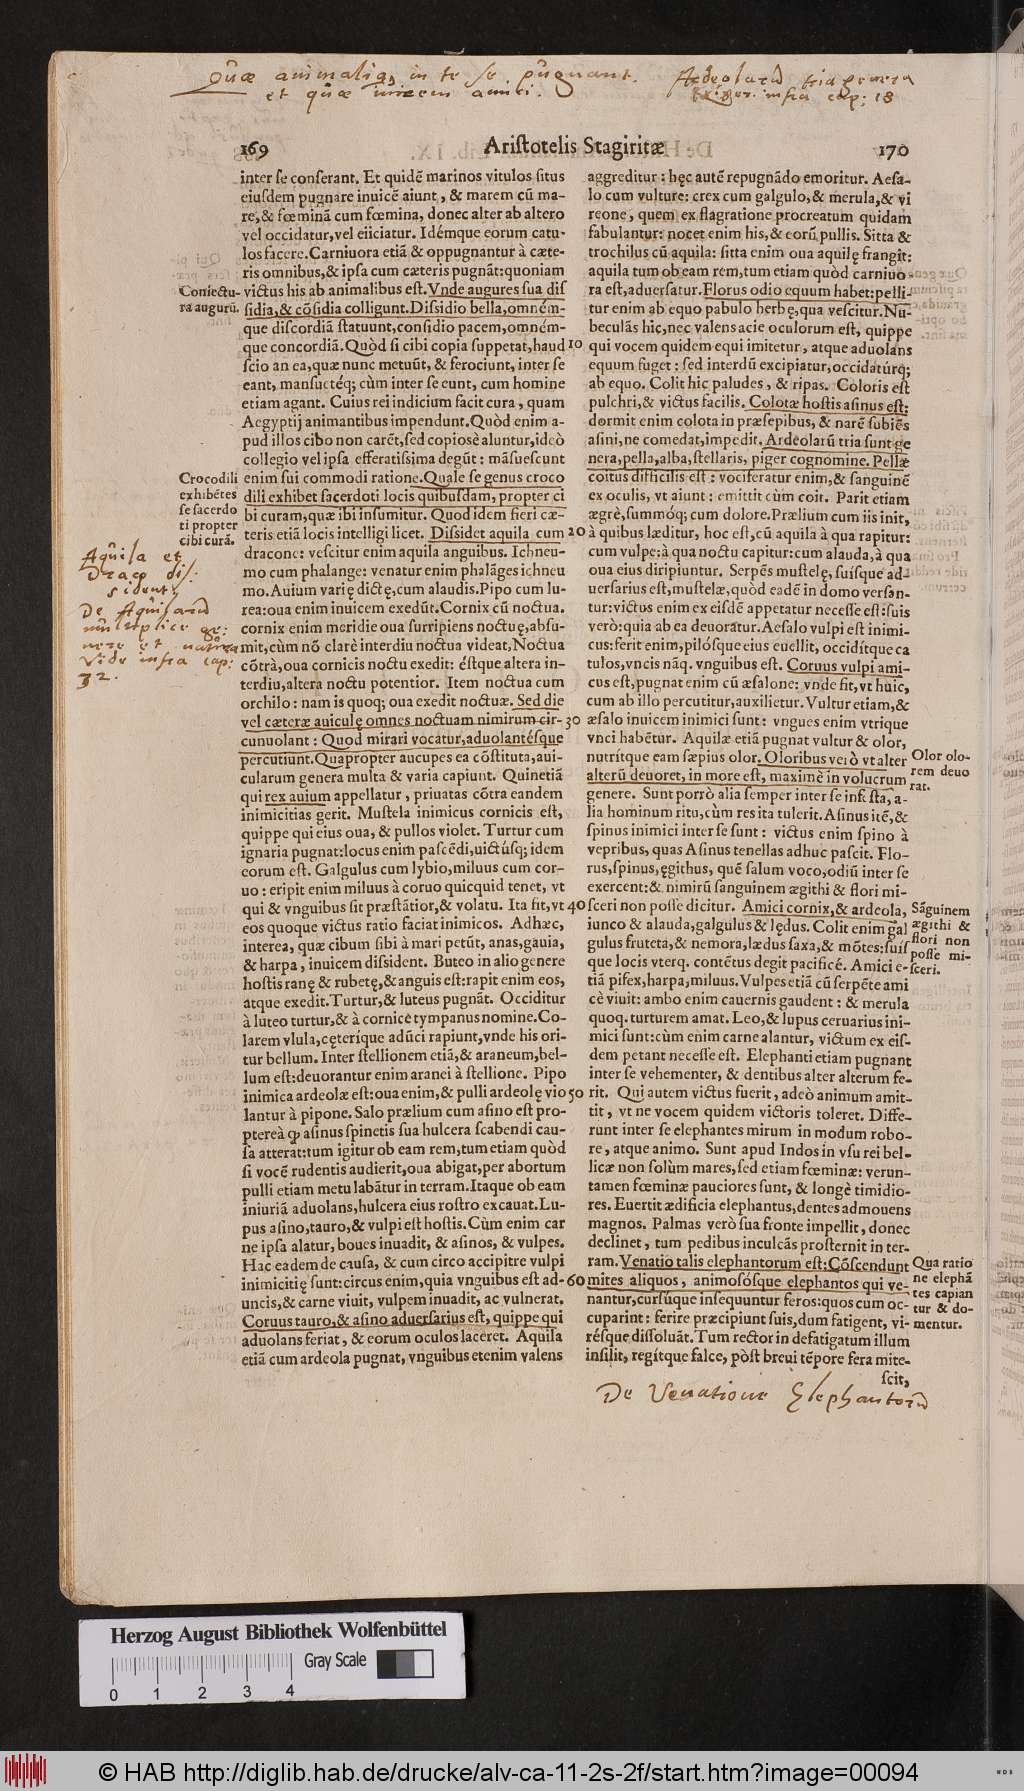 Quæ animalia in te se pugnant.
et quæ invicem amici.
Ardeolarū tria genera
infra cap: 18
169
Ariſtotelis Stagiritæ
170
inter ſe conferant. Et quidē marinos vitulos ſitus
eiuſdem pugnare inuicē aiunt, & marem cū ma-
re, & fœminā cum fœmina, donec alter ab altero
vel occidatur, vel eiiciatur. Idémque eorum catu-
los facere. Carniuora etiā & oppugnantur à cæte-
ris omnibus, & ipſa cum cæteris pugnāt: quoniam
victus his ab animalibus eſt. Vnde augures ſua diſ
ſidia, & cōſidia colligunt. Diſsidio bella, omném-
que diſcordiā ſtatuunt, conſidio pacem, omném-
que concordiā. Quòd ſi cibi copia ſuppetat, haud
ſcio an ea, quæ nunc metuūt, & ferociunt, inter ſe
eant, manſuctéq; cùm inter ſe eunt, cum homine
etiam agant. Cuius rei indicium facit cura, quam
Aegyptij animantibus impendunt. Quòd enim a-
pud illos cibo non carēt, ſed copiosè aluntur, ideò
collegio vel ipſa efferatiſsima degūt: māſueſcunt
enim ſui commodi ratione. Quale ſe genus croco
dili exhibet ſacerdoti locis quibuſdam, propter ci
bi curam, quæ ibi inſumitur. Quod idem fieri cæ-
teris etiā locis intelligi licet. Diſsidet aquila cum
dracone: veſcitur enim aquila anguibus. Ichneu-
mo cum phalange: venatur enim phalāges ichneu
mo. Auium varię dictę, cum alaudis. Pipo cum lu-
rea: oua enim inuicem exedūt. Cornix cū noctua.
cornix enim meridie oua ſurripiens noctuę, abſu-
mit, cùm nō clarè interdiu noctua videat. Noctua
cōtrà, oua cornicis noctu exedit: éſtque altera in-
terdiu, altera noctu potentior. Item noctua cum
orchilo: nam is quoq; oua exedit noctuæ. Sed die
vel cæteræ auiculę omnes noctuam nimirum cir-
cunuolant: Quod mirari vocatur, aduolantéſque
percutiunt. Quapropter aucupes ea cōſtituta, aui-
cularum genera multa & varia capiunt. Quinetiā
qui rex auium appellatur, priuatas cōtra eandem
inimicitias gerit. Muſtela inimicus cornicis eſt,
quippe qui eius oua, & pullos violet. Turtur cum
ignaria pugnat: locus enim paſcēdi, uictúſq; idem
eorum eſt. Galgulus cum lybio, miluus cum cor-
uo: eripit enim miluus à coruo quicquid tenet, vt
qui & vnguibus ſit præſtātior, & volatu. Ita fit, vt
eos quoque victus ratio faciat inimicos. Adhæc,
interea, quæ cibum ſibi à mari petūt, anas, gauia,
& harpa, inuicem diſsident. Buteo in alio genere
hoſtis ranę & rubetę, & anguis eſt: rapit enim eos,
atque exedit. Turtur, & luteus pugnāt. Occiditur
à luteo turtur, & à cornicē tympanus nomine. Co-
larem vlula, cęteríque adūci rapiunt, vnde his ori-
tur bellum. Inter ſtellionem etiā, & araneum, bel-
lum eſt: deuorantur enim aranei à ſtellione. Pipo
inimica ardeolæ eſt: oua enim, & pulli ardeolę vio
lantur à pipone. Salo prælium cum aſino eſt pro-
ptereà ꝙ aſinus ſpinetis ſua hulcera ſcabendi cau-
ſa atterat: tum igitur ob eam rem, tum etiam quòd
ſi vocē rudentis audierit, oua abigat, per abortum
pulli etiam metu labātur in terram. Itaque ob eam
iniuriā aduolans, hulcera eius roſtro excauat. Lu-
pus aſino, tauro, & vulpi eſt hoſtis. Cùm enim car
ne ipſa alatur, boues inuadit, & aſinos, & vulpes.
Hac eadem de cauſa, & cum circo accipitre vulpi
inimicitię ſunt: circus enim, quia vnguibus eſt ad-
uncis, & carne viuit, vulpem inuadit, ac vulnerat.
Coruus tauro, & aſino aduerſarius eſt, quippe qui
aduolans feriat, & eorum oculos laceret. Aquila
etiā cum ardeola pugnat, vnguibus etenim valens
Coniectu-
ra augurū.
Crocodili
exhibētes
ſe ſacerdo
ti propter
cibi curā.
Aquila et
Draco diſ:
sident;
De Aquilarū
multiplice ge:
nere et natura
Vide infra cap:
32.
10
20
30
40
50
60
aggreditur: hęc autē repugnādo emoritur. Aeſa-
lo cum vulture: crex cum galgulo, & merula, & vi
reone, quem ex flagratione procreatum quidam
fabulantur: nocet enim his, & eorū pullis. Sitta &
trochilus cū aquila: ſitta enim oua aquilę frangit:
aquila tum ob eam rem, tum etiam quòd carniuo
ra eſt, aduerſatur. Florus odio equum habet: pelli-
tur enim ab equo pabulo herbę, qua veſcitur. Nu-
beculās hic, nec valens acie oculorum eſt, quippe
qui vocem quidem equi imitetur, atque aduolans
equum fuget: ſed interdū excipiatur, occidatúrq;
ab equo. Colit hic paludes, & ripas. Coloris eſt
pulchri, & victus facilis. Colotæ hoſtis aſinus eſt:
dormit enim colota in præſepibus, & narē ſubiēs
aſini, ne comedat, impedit. Ardeolarū tria ſunt ge
nera, pella, alba, ſtellaris, piger cognomine. Pellæ
coitus difficilis eſt: vociferatur enim, & ſanguinē
ex oculis, vt aiunt: emittit cùm coit. Parit etiam
ægrè, ſummóq; cum dolore. Prælium cum iis init,
à quibus læditur, hoc eſt, cū aquila à qua rapitur:
cum vulpe: à qua noctu capitur: cum alauda, à qua
oua eius diripiuntur. Serpēs muſtelę, ſuiſque ad-
uerſarius eſt, muſtelæ, quòd eadē in domo verſan-
tur: victus enim ex eiſdē appetatur neceſſe eſt: ſuis
verò: quia ab ea deuoratur. Aeſalo vulpi eſt inimi-
cus: ferit enim, pilóſque eius euellit, occidítque ca
tulos, vncis nāq. vnguibus eſt. Coruus vulpi ami-
cus eſt, pugnat enim cū æſalone: vnde fit, vt huic,
cum ab illo percutitur, auxilietur. Vultur etiam, &
æſalo inuicem inimici ſunt: vngues enim vtrique
vnci habētur. Aquilæ etiā pugnat vultur & olor,
nutrítque eam ſæpius olor. Oloribus verò vt alter
alterū deuoret, in more eſt, maximè in volucrum
genere. Sunt porrò alia ſemper inter ſe infeſta, a-
lia hominum ritu, cùm res ita tulerit. Aſinus itē, &
ſpinus inimici inter ſe ſunt: victus enim ſpino à
vepribus, quas Aſinus tenellas adhuc paſcit. Flo-
rus, ſpinus, ęgithus, quē ſalum voco, odiū inter ſe
exercent: & nimirū ſanguinem ægithi & flori mi-
ſceri non poſſe dicitur. Amici cornix, & ardeola,
iunco & alauda, galgulus & lędus. Colit enim gal
gulus fruteta, & nemora, lædus ſaxa, & mōtes: ſuiſ
que locis vterq. contētus degit pacificé. Amici e-
tiā piſex, harpa, miluus. Vulpes etiā cū ſerpēte ami
cè viuit: ambo enim cauernis gaudent: & merula
quoq. turturem amat. Leo, & lupus ceruarius ini-
mici ſunt: cùm enim carne alantur, victum ex eiſ-
dem petant neceſſe eſt. Elephanti etiam pugnant
inter ſe vehementer, & dentibus alter alterum fe-
rit. Qui autem victus fuerit, adeò animum amit-
tit, vt ne vocem quidem victoris toleret. Diffe-
runt inter ſe elephantes mirum in modum robo-
re, atque animo. Sunt apud Indos in vſu rei bel-
licæ non ſolùm mares, ſed etiam fœminæ: verun-
tamen fœminæ pauciores ſunt, & longè timidio-
res. Euertit ædificia elephantus, dentes admouens
magnos. Palmas verò ſua fronte impellit, donec
declinet, tum pedibus inculcās proſternit in ter-
ram. Venatio talis elephantorum eſt: Cōſcendunt
mites aliquos, animoſóſque elephantos qui ve-
nantur, curſúque inſequuntur feros: quos cum oc-
cuparint: ferire præcipiunt ſuis, dum fatigent, vi-
réſque diſſoluāt. Tum rector in defatigatum illum
inſilit, regítque falce, pòſt breui tēpore fera mite-
ſcit,
Olor olo-
rem deuo
rat.
Sāguinem
ægithi &
flori non
poſſe mi-
ſceri.
Qua ratio
ne elephā
tes capian
tur & do-
mentur.
De Venatione Elephantorū
Herzog August Bibliothek Wolfenbüttel
Gray Scale
0 1 2 3 4
© HAB http://diglib.hab.de/drucke/alv-ca-11-2s-2f/start.htm?image=00094